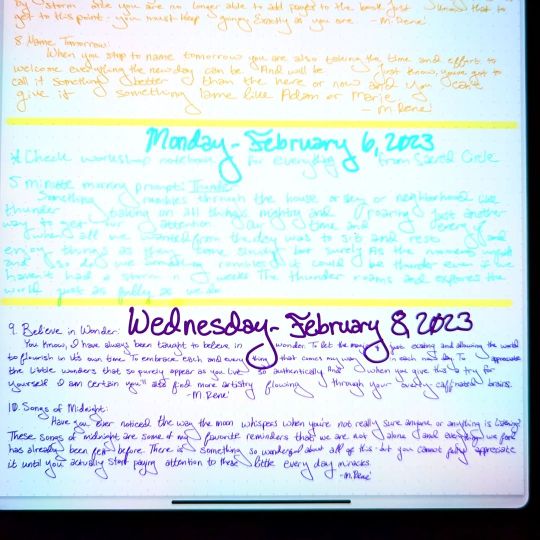 by storm are you are no longer able to add pages to the book just know that to
get to this point - you must keep going exactly as you are - M. Rene'
8. Name Tomorrow:
When you stop to name tomorrow you are also taking the time and effort to
welcome everything the new day can be And will be just know, you've got to
call it something better than the here or now and you can't
give it something lame like Adam or Marie
- M. Rene'
Monday - February 6, 2023
* Check workshop notebook for everything from Sacred Circle
5 minute morning prompt: Thunder
Something marches through the house or sky or neighborhood like
thunder taking on all things mighty and roaring Just another
way to get our attention Our time and energy
when all we wanted from the day was to sit and rest and
enjoy things as they come slowly but surely As the memories
and so do we something reminds us it could be thunder even if we
haven't had a storm in weeks The thunder roams and explores the
world just as fully as we do
Wednesday - February 8, 2023
9. Believe in Wonder:
You know, I have always been taught to believe in wonder. To let the magic just existing and allowing the world
to flourish in it's own time To embrace each and every thing that comes my way in each new day To appreciate
the little wonders that so purely appear as you live so authentically And when you give this a try for
yourself I am certain you'll also find more artistry flowing through your overly-caffinated brains.
- M. Rene'
10. Songs of Midnight:
Have you ever noticed the way the moon whispers when you're not really sure anyone or anything is listening?
These songs of midnight are some of my favorite reminders that we are not alone and everything we feel
has already been felt before. There is something so wonderful about all of this - but you cannot fully appreciate
it until you actually start paying attention to these little every day miracles.
- M. Rene'